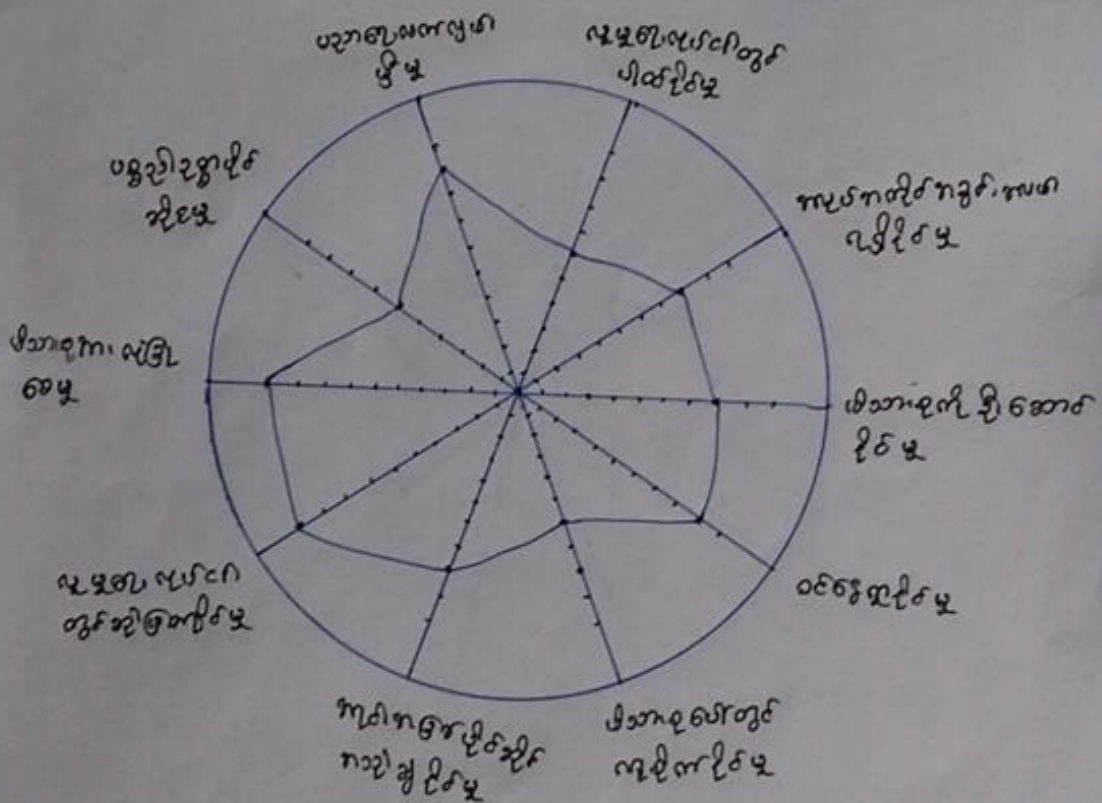 ပညာရေးလက်လှမ်း
မှီမှု
လူမှုရေးလုပ်ငန်းတွင်
ပါဝင်နိုင်မှု
အလုပ်အကိုင်အခွင့်အလမ်း
ရရှိနိုင်မှု
မိသားစုကို ဦးဆောင်
နိုင်မှု
ဝင်ငွေရှာနိုင်မှု
မိသားစုပေါ်တွင်
မှု
နိုင်မှု
လူမှုရေး လုပ်ငန်း
တွင်ဆုံးဖြတ်နိုင်မှု
မိသားစုအား လုံခြုံ
စေမှု
ပစ္စည်းဥစ္စာပိုင်
ဆိုင်မှု